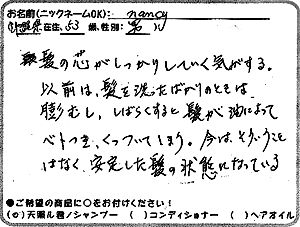 お名前(ニックネームOK): nancy
県在住. 53 歳, 性別: 男
髪の芯がしっかりしていく気がする。
以前は、髪を洗ったばかりのときは
膨むし、しばらくすると髪が油によって
ベトつき、くっついてしまう。今は、そういうこと
はなく、安定した髪の状態になっている
●ご希望の商品に○をお付けください!
(○)天陽ル君ノシャンプー ( )コンディショナー ( )ヘアオイル